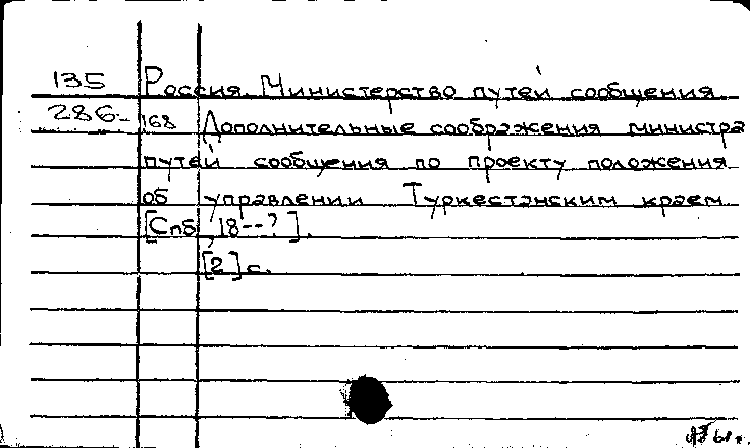 135 Россия. Министерство путей сообщения
286- 168 Дополнительные соображения министра
путей сообщения по проекту положения
об управлении Туркестанским краем
[Спб, 18--?].
[2] с.